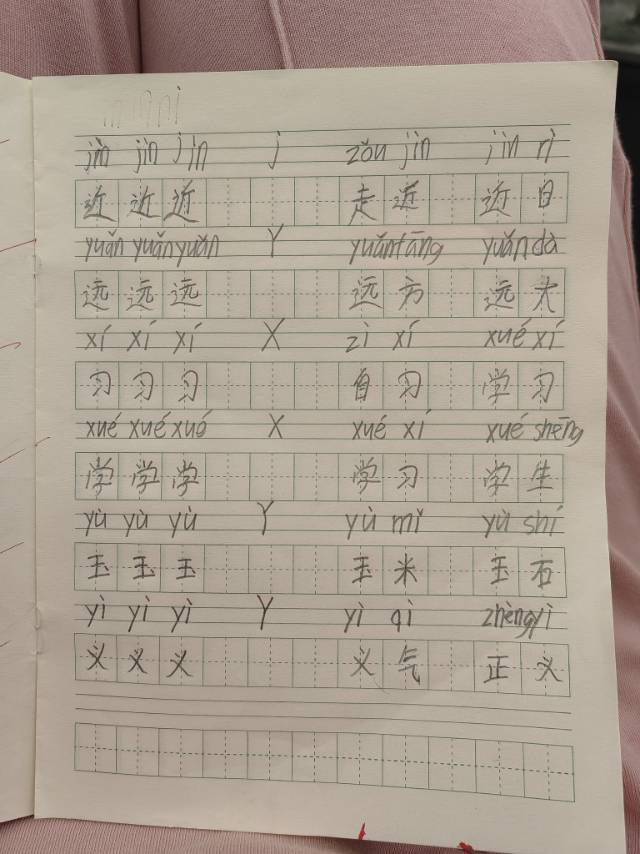 jìn jìn jìn j zǒu jìn jìn rì
近 近 近 走 近 近 日
yuǎn yuǎn yuǎn Y yuǎn fāng yuǎn dà
远 远 远 远 方 远 大
xí xí xí X zì xí xué xí
习 习 习 自 习 学 习
xué xué xué X xué xí xué shēng
学 学 学 学 习 学 生
yù yù yù Y yù mǐ yù shí
玉 玉 玉 玉 米 玉 石
yì yì yì Y yì qì zhèng yì
义 义 义 义 气 正 义